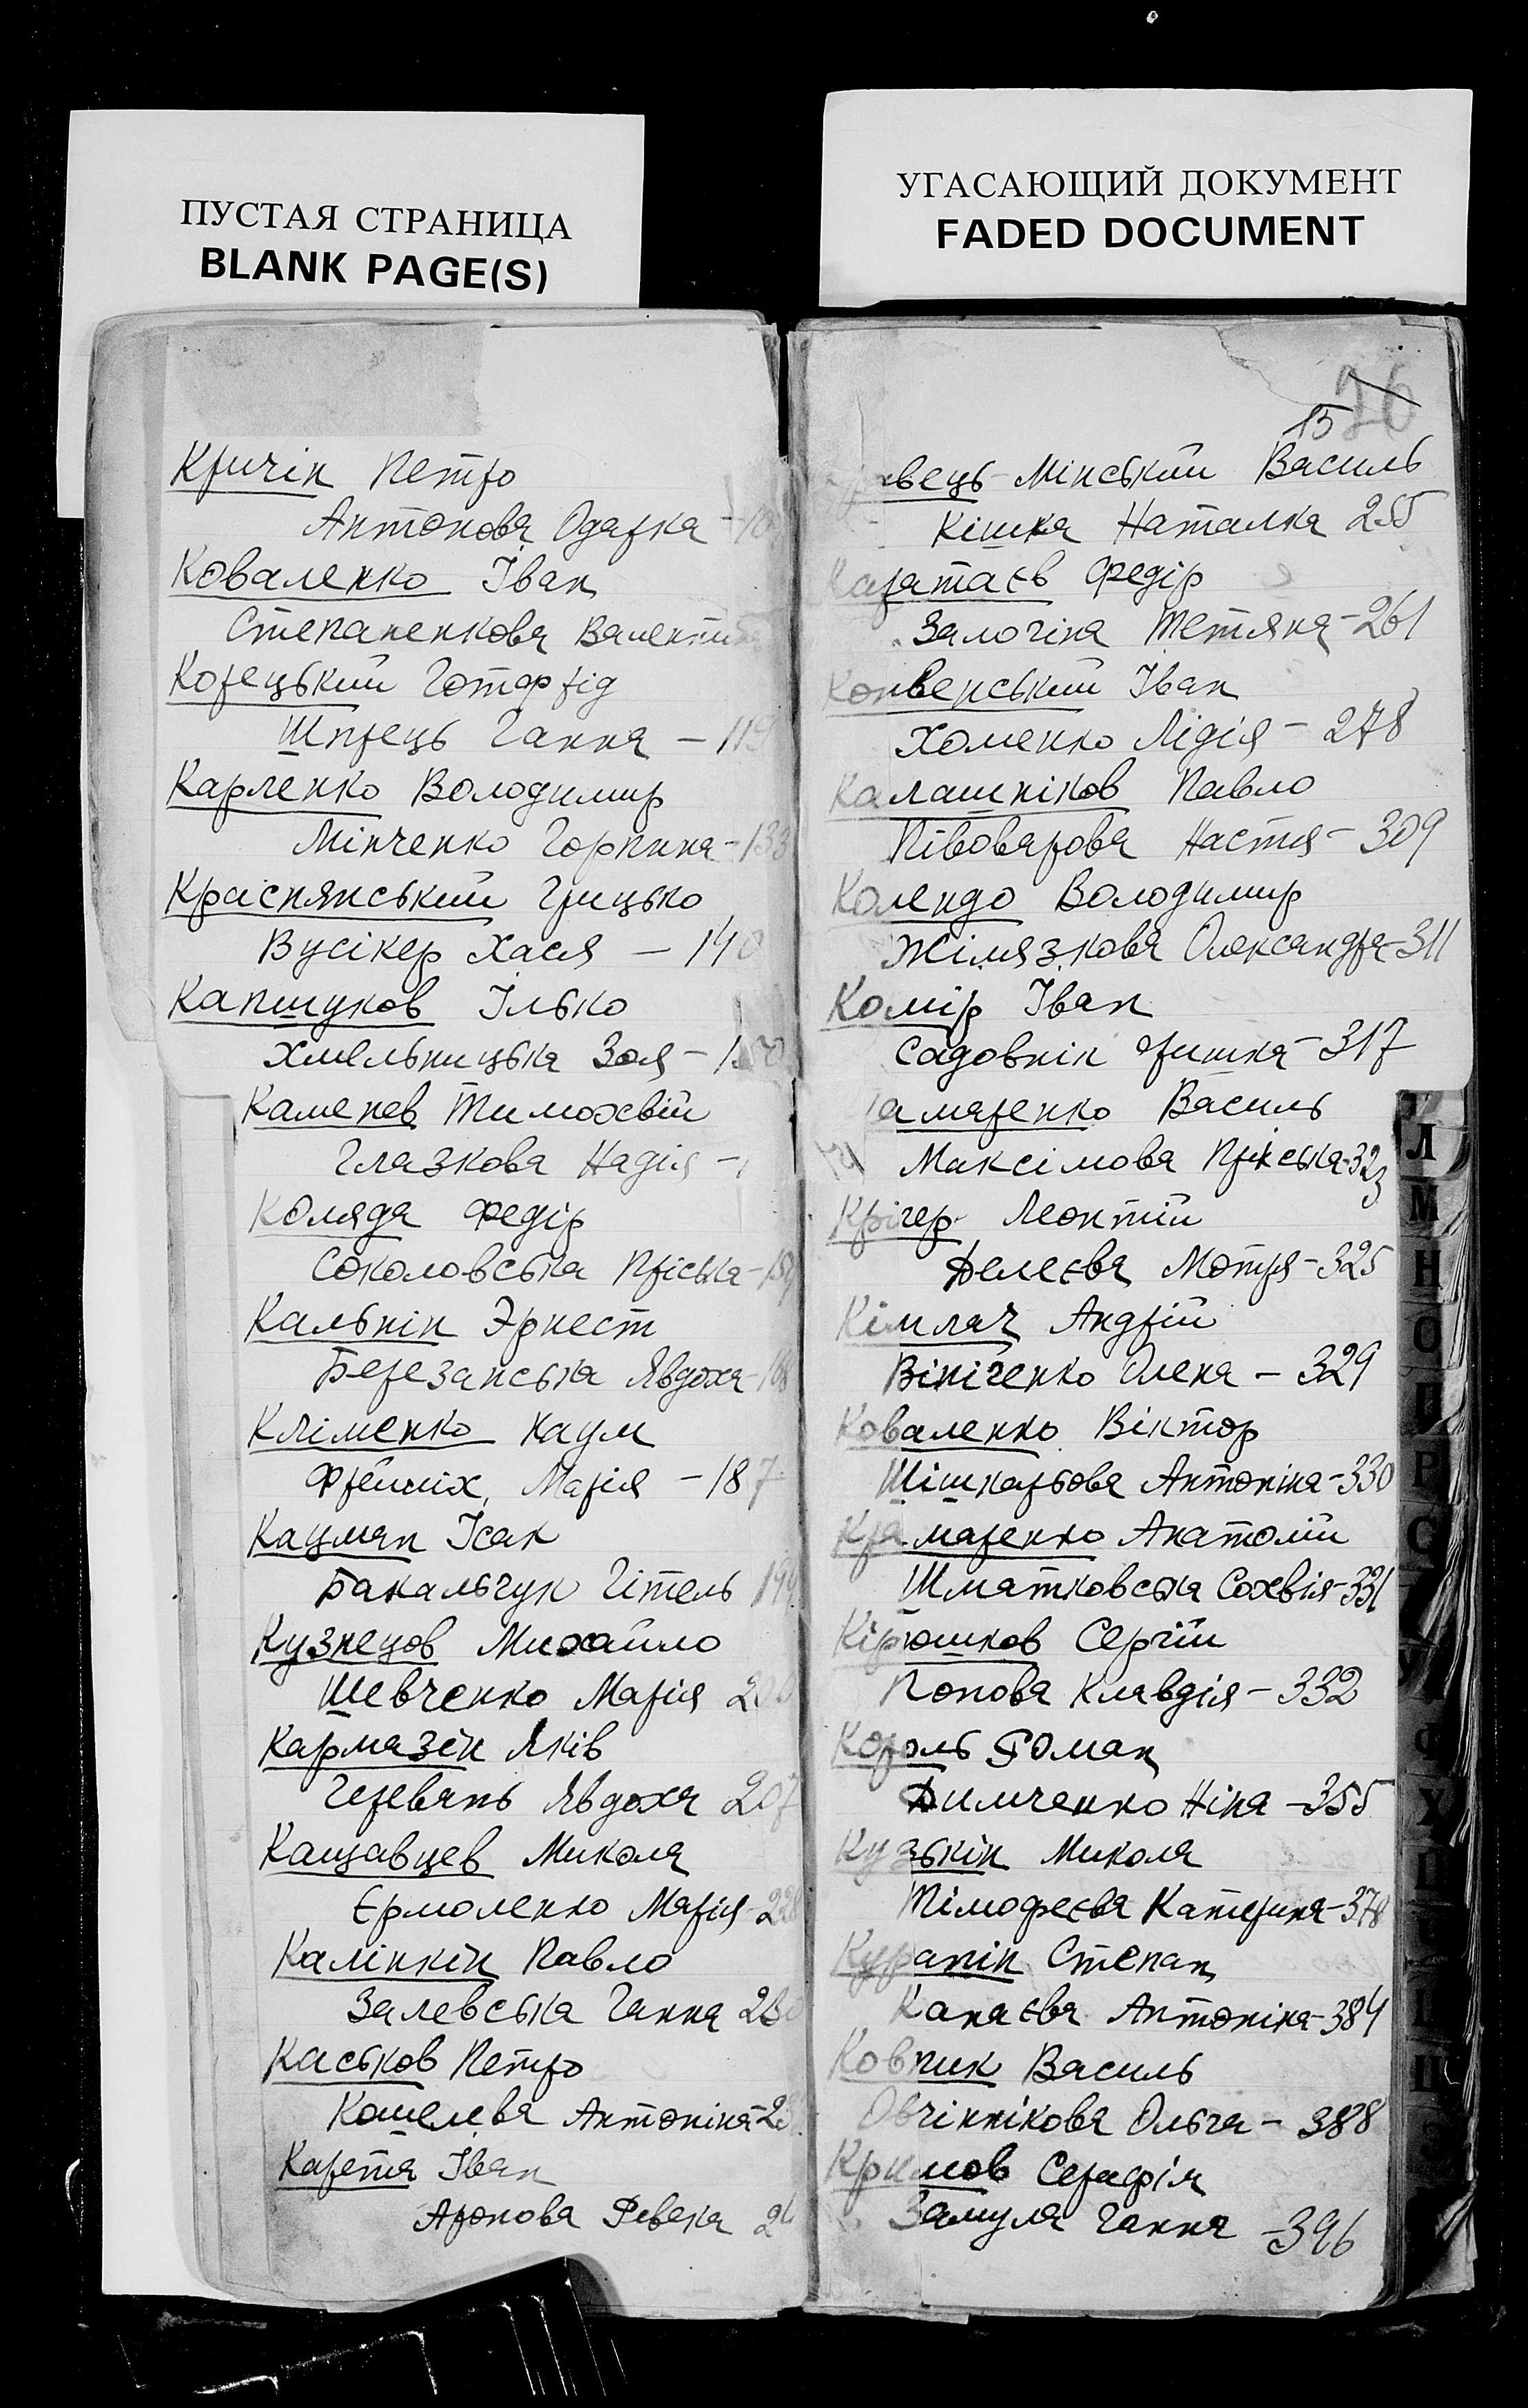 ПУСТАЯ СТРАНИЦА
BLANK PAGE(S)
УГАСАЮЩИЙ ДОКУМЕНТ
FADED DOCUMENT
Кричін Петро
Антонова Одарка
Коваленко Іван
Степаненкова Валентина
Корецький Готфрід
Шпрець Ганна – 119
Карленко Володимир
Мінченко Горпина – 133
Краіснянський Грицько
Вусікер Хася – 140
Капшуков Ілько
Хмельницька Зоя – 150
Каменев Тимохвій
Глазкова Надія –
Коляда Федір
Соколовська Пріська –
Кальнін Эрнест
Березанська Явдоха – 168
Кліменко Наум
Фрейліх Марія – 187
Кацман Ісак
Бакальчук Гітель 199
Кузнецов Михайло
Шевченко Марія
Кармазін Яків
Черевань Явдоха 207
Кащавцев Микола
Єрмоленко Марія
Калінкін Павло
Залевська Ганна 230
Каськов Петро
Кошелєва Антоніна
Карета Іван
Аронова Ревека
76
15
Мінський Василь
Кішка Наталка 255
Каратаєв Федір
Залогіна Тетяна – 261
Конверський Іван
Хоменко Лідія – 278
Калашніков Павло
Півоварова Настя – 309
Колендо Володимир
Жілязкова Олександра – 311
Комір Іван
Садовнік Гришка – 317
амаренко Василь
Максімова Пріська – 323
Крігер Леонтій
Делеєва Мотря – 325
Кімлач Андрій
Вініченко Олена – 329
Коваленко Віктор
Шішкарьова Антоніна – 330
Крамаренко Анатолій
Шматковська Сохвія – 331
Кірюшков Сергій
Попова Клавдія – 332
Король Роман
Димченко Ніна – 355
Кузькін Микола
Тімофеєва Катерина – 378
Курапін Степан
Канаєва Антоніна – 384
Ковпик Василь
Овчіннікова Ольга – 388
Кримов Серафім
Замула Ганна – 396
Л
М
Н
О
П
Р
С
У
Ф
Х